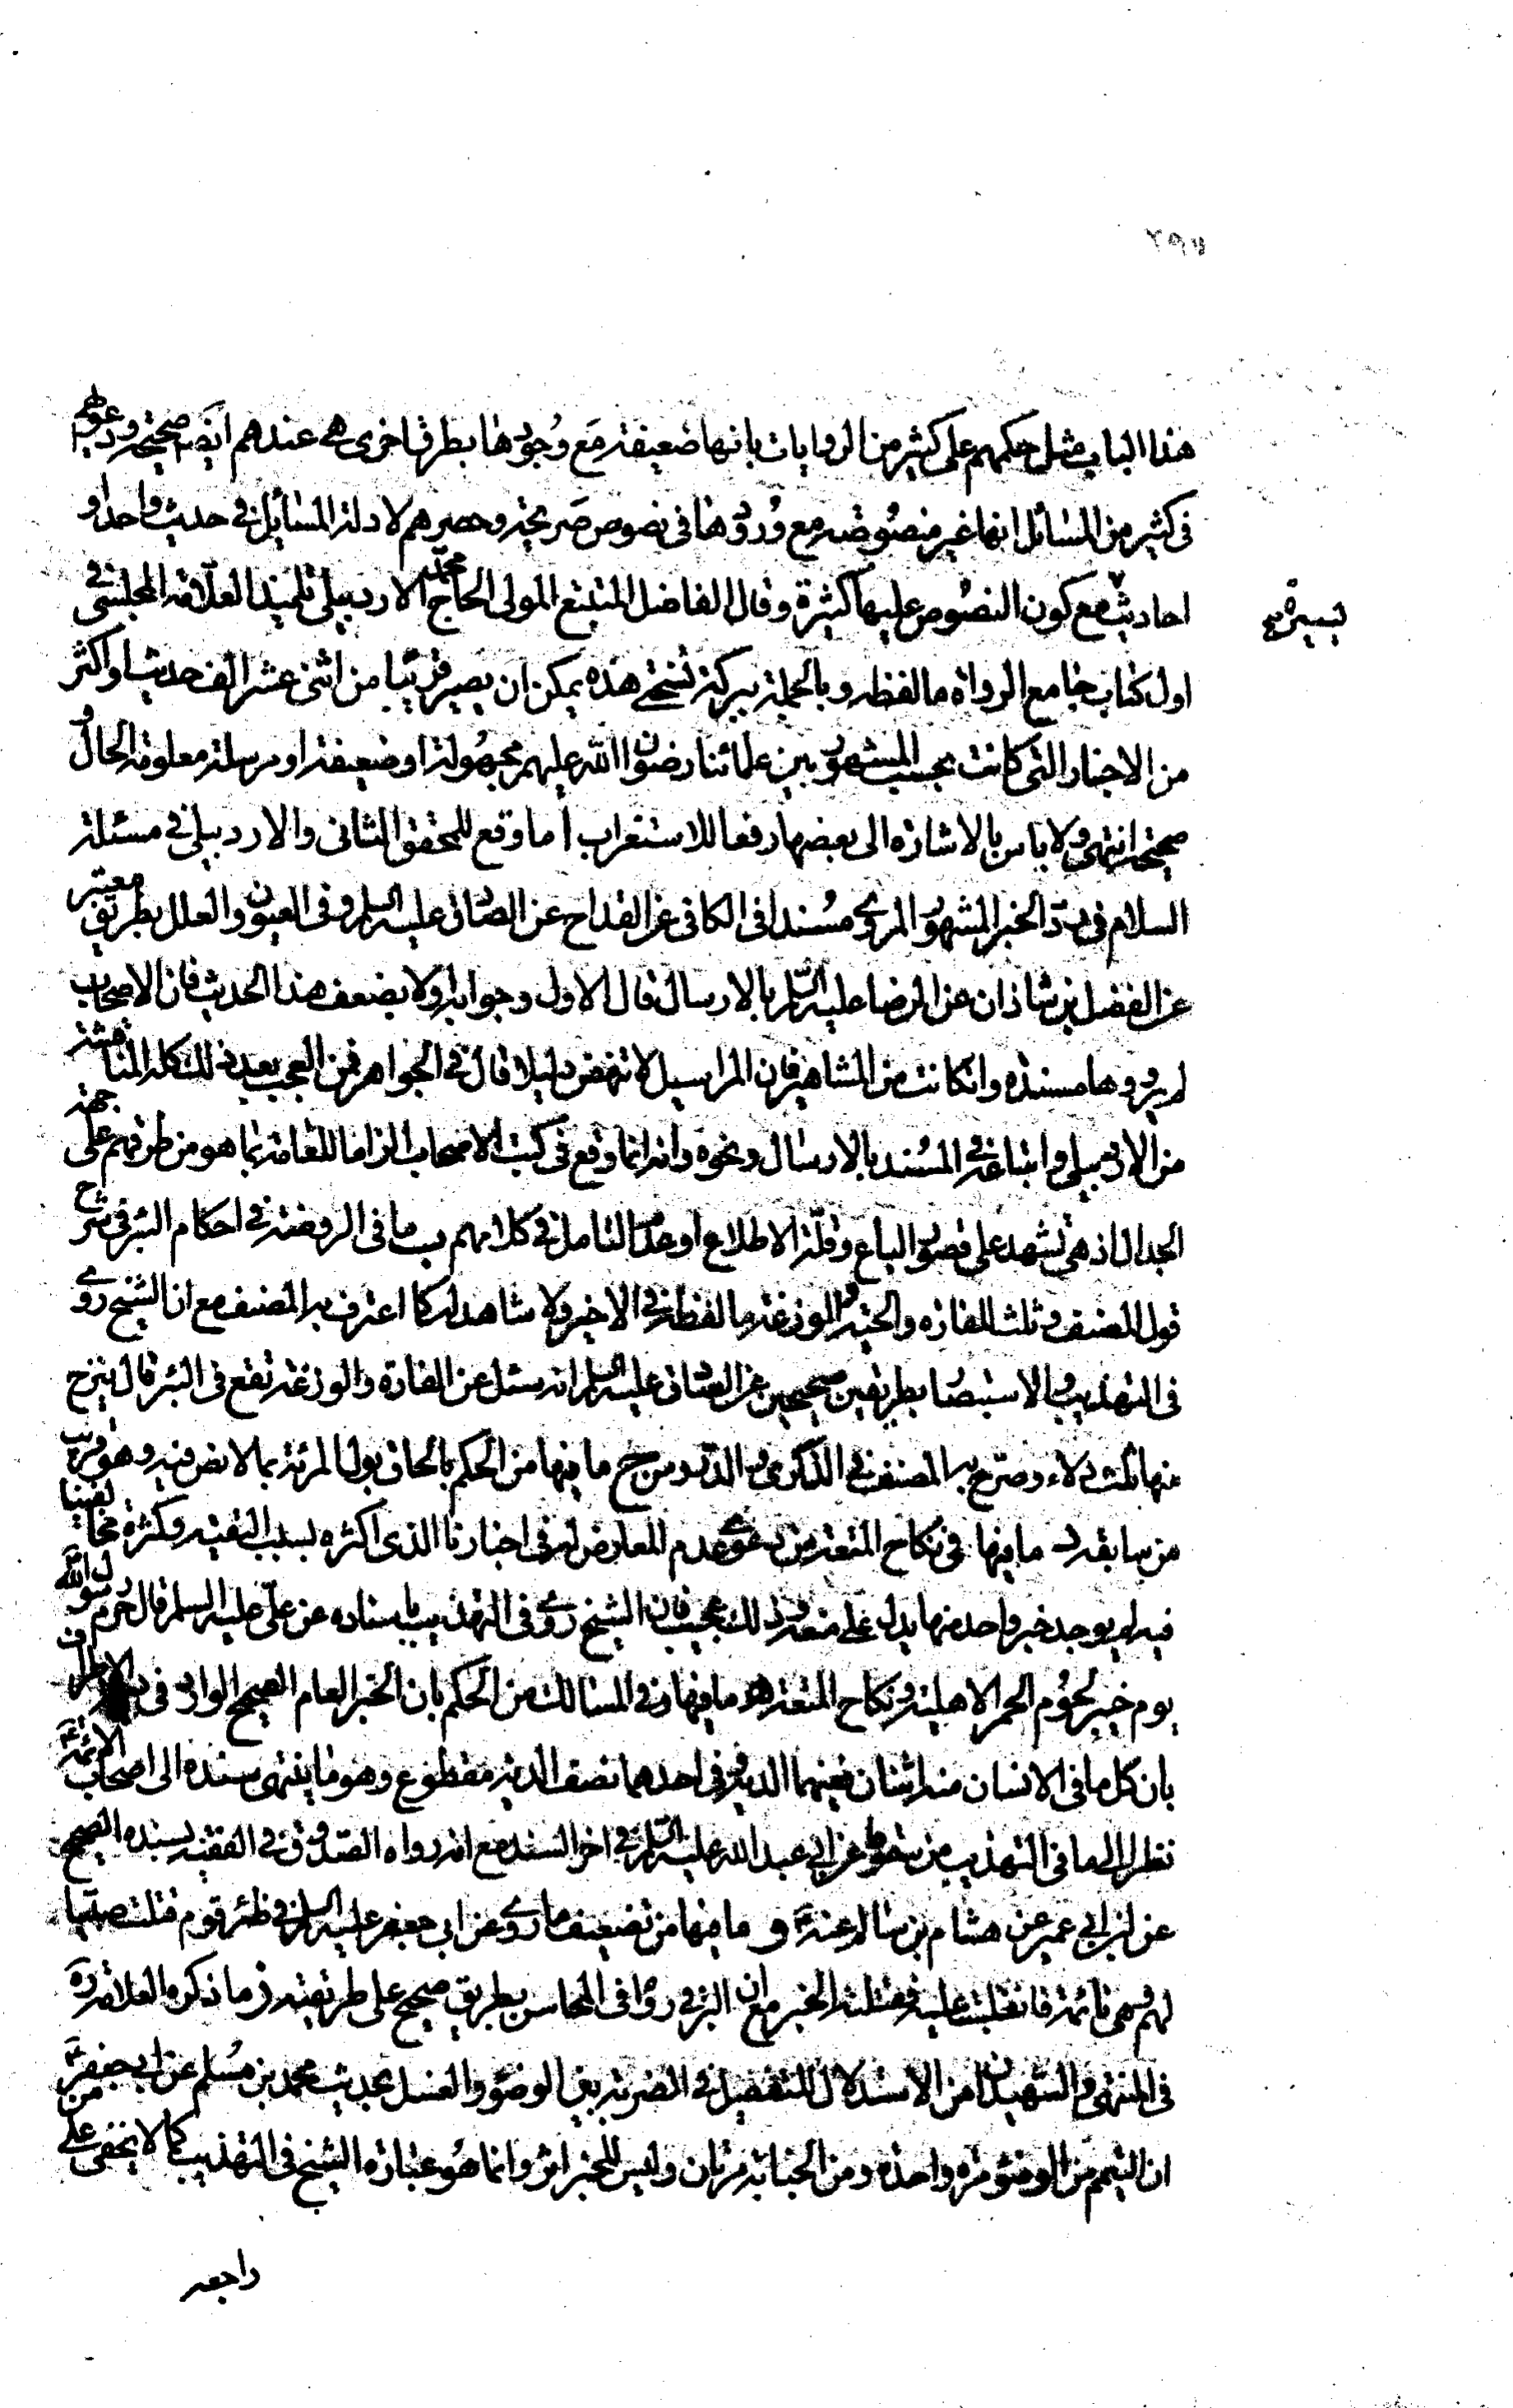 ٢٩٧
هذا الباب مثل حكمهم على كثير من الروايات بانها ضعيفة مع وجودها بطرق اخرى هي عندهم ايضا صحيحة ودعواهم
في كثير من المسائل انها غير منصوصة مع ورودها في نصوص صريحة وحصرهم لادلة المسائل في حديث واحد او
احاديث مع كون النصوص عليها كثيرة وقال الفاضل المتتبع المولى الحاج محمد الاردبيلي تلميذ العلامة المجلسي في
يسيرة صح
اول كتاب جامع الرواة ما لفظه وبالجملة ببركة نسختي هذه يمكن ان يصير قريبا من اثنى عشر الف حديث او اكثر
من الاخبار التي كانت بحسب المشهور بين علمائنا رضوان الله عليهم مجهولة او ضعيفة او مرسلة معلومة الحال و
صحيحة انتهى ولا باس بالاشارة الى بعضها رفعا للاستغراب ا ما وقع للمحقق الثاني والاردبيلي في مسئلة
السلام في رد الخبر المشهور المروي مسندا في الكافي عن القداح عن الصادق عليه السلم وفي العيون والعلل بطريق معتبر
عن الفضل بن شاذان عن الرضا عليه السلم بالارسال قال الاول وجوابه اولا بضعف هذا الحديث فان الاصحاب
لم يرووها مسندة وان كانت من المشاهير فان المراسيل لا تنهض دليلا قال في الجواهر فمن العجيب بعد ذلك كله المناقشة
من الاردبيلي واتباعه في المسند بالارسال ونحوه وانه انما وقع في كتب الاصحاب الزاما للعامة بما هو من طرقهم على جهة
الجدال اذ هي تشهد على قصور الباع وقلة الاطلاع او عدم التامل في كلامهم ب ما في الروضة في احكام البئر في شرح
قول المصنف وثلث للفارة والحية والوزغة ما لفظه في الاخير ولا شاهد له كما اعترف به المصنف مع ان الشيخ روى
في التهذيب والاستبصار بطريقين صحيحين عن الصادق عليه السلم انه سئل عن الفارة والوزغة تقع في البئر قال ينزح
منها ثلث دلاء وصرح به المصنف في الذكرى والدروس ج ما فيها من الحكم بالحاق بول المرئة بما لا نص فيه وهو قريب
من سابقه د ما فيها في نكاح المتعة من دعوى عدم المعارض له في اخبارنا الذي اكثره بسبب التقية وكثرة مخالفينا
فيه لم يوجد خبر واحد منها يدل على منعه وذلك عجيب فان الشيخ روى في التهذيب باسناده عن علي عليه السلم قال حرم رسول الله
يوم خيبر لحوم الحمر الاهلية ونكاح المتعة هـ ما فيها وفي المسالك من الحكم بان الخبر العام الصحيح الوارد في دية الاطراف
بان كل ما في الانسان منه اثنان ففيهما الدية وفي احدهما نصف الدية مقطوع وهو ما ينتهي سنده الى اصحاب الائمة ع
نظرا الى ما في التهذيب من سقوط عن ابي عبد الله عليه السلم في اخر السند مع انه رواه الصدوق في الفقيه بسنده الصحيح
عن ابن ابي عمير عن هشام بن سالم عنه ع و ما فيها من تضعيف ما روى عن ابي جعفر عليه السلم في ظئر قوم قتلت صبيا
لهم وهي نائمة فانقلبت عليه فقتلته الخبر مع ان البرقي رواه في المحاسن بطريق صحيح على طريقته ز ما ذكره العلامة ره
في المنتهى والشهيدان من الاستدلال للتفصيل في الضربة بين الوضوء والغسل بحديث محمد بن مسلم عن ابي جعفر ع
ان التيمم من الوضوء مرة واحدة ومن الجنابة مرتان وليس للخبر اثر وانما هو عبارة الشيخ في التهذيب كما لا يخفى على من
راجعه